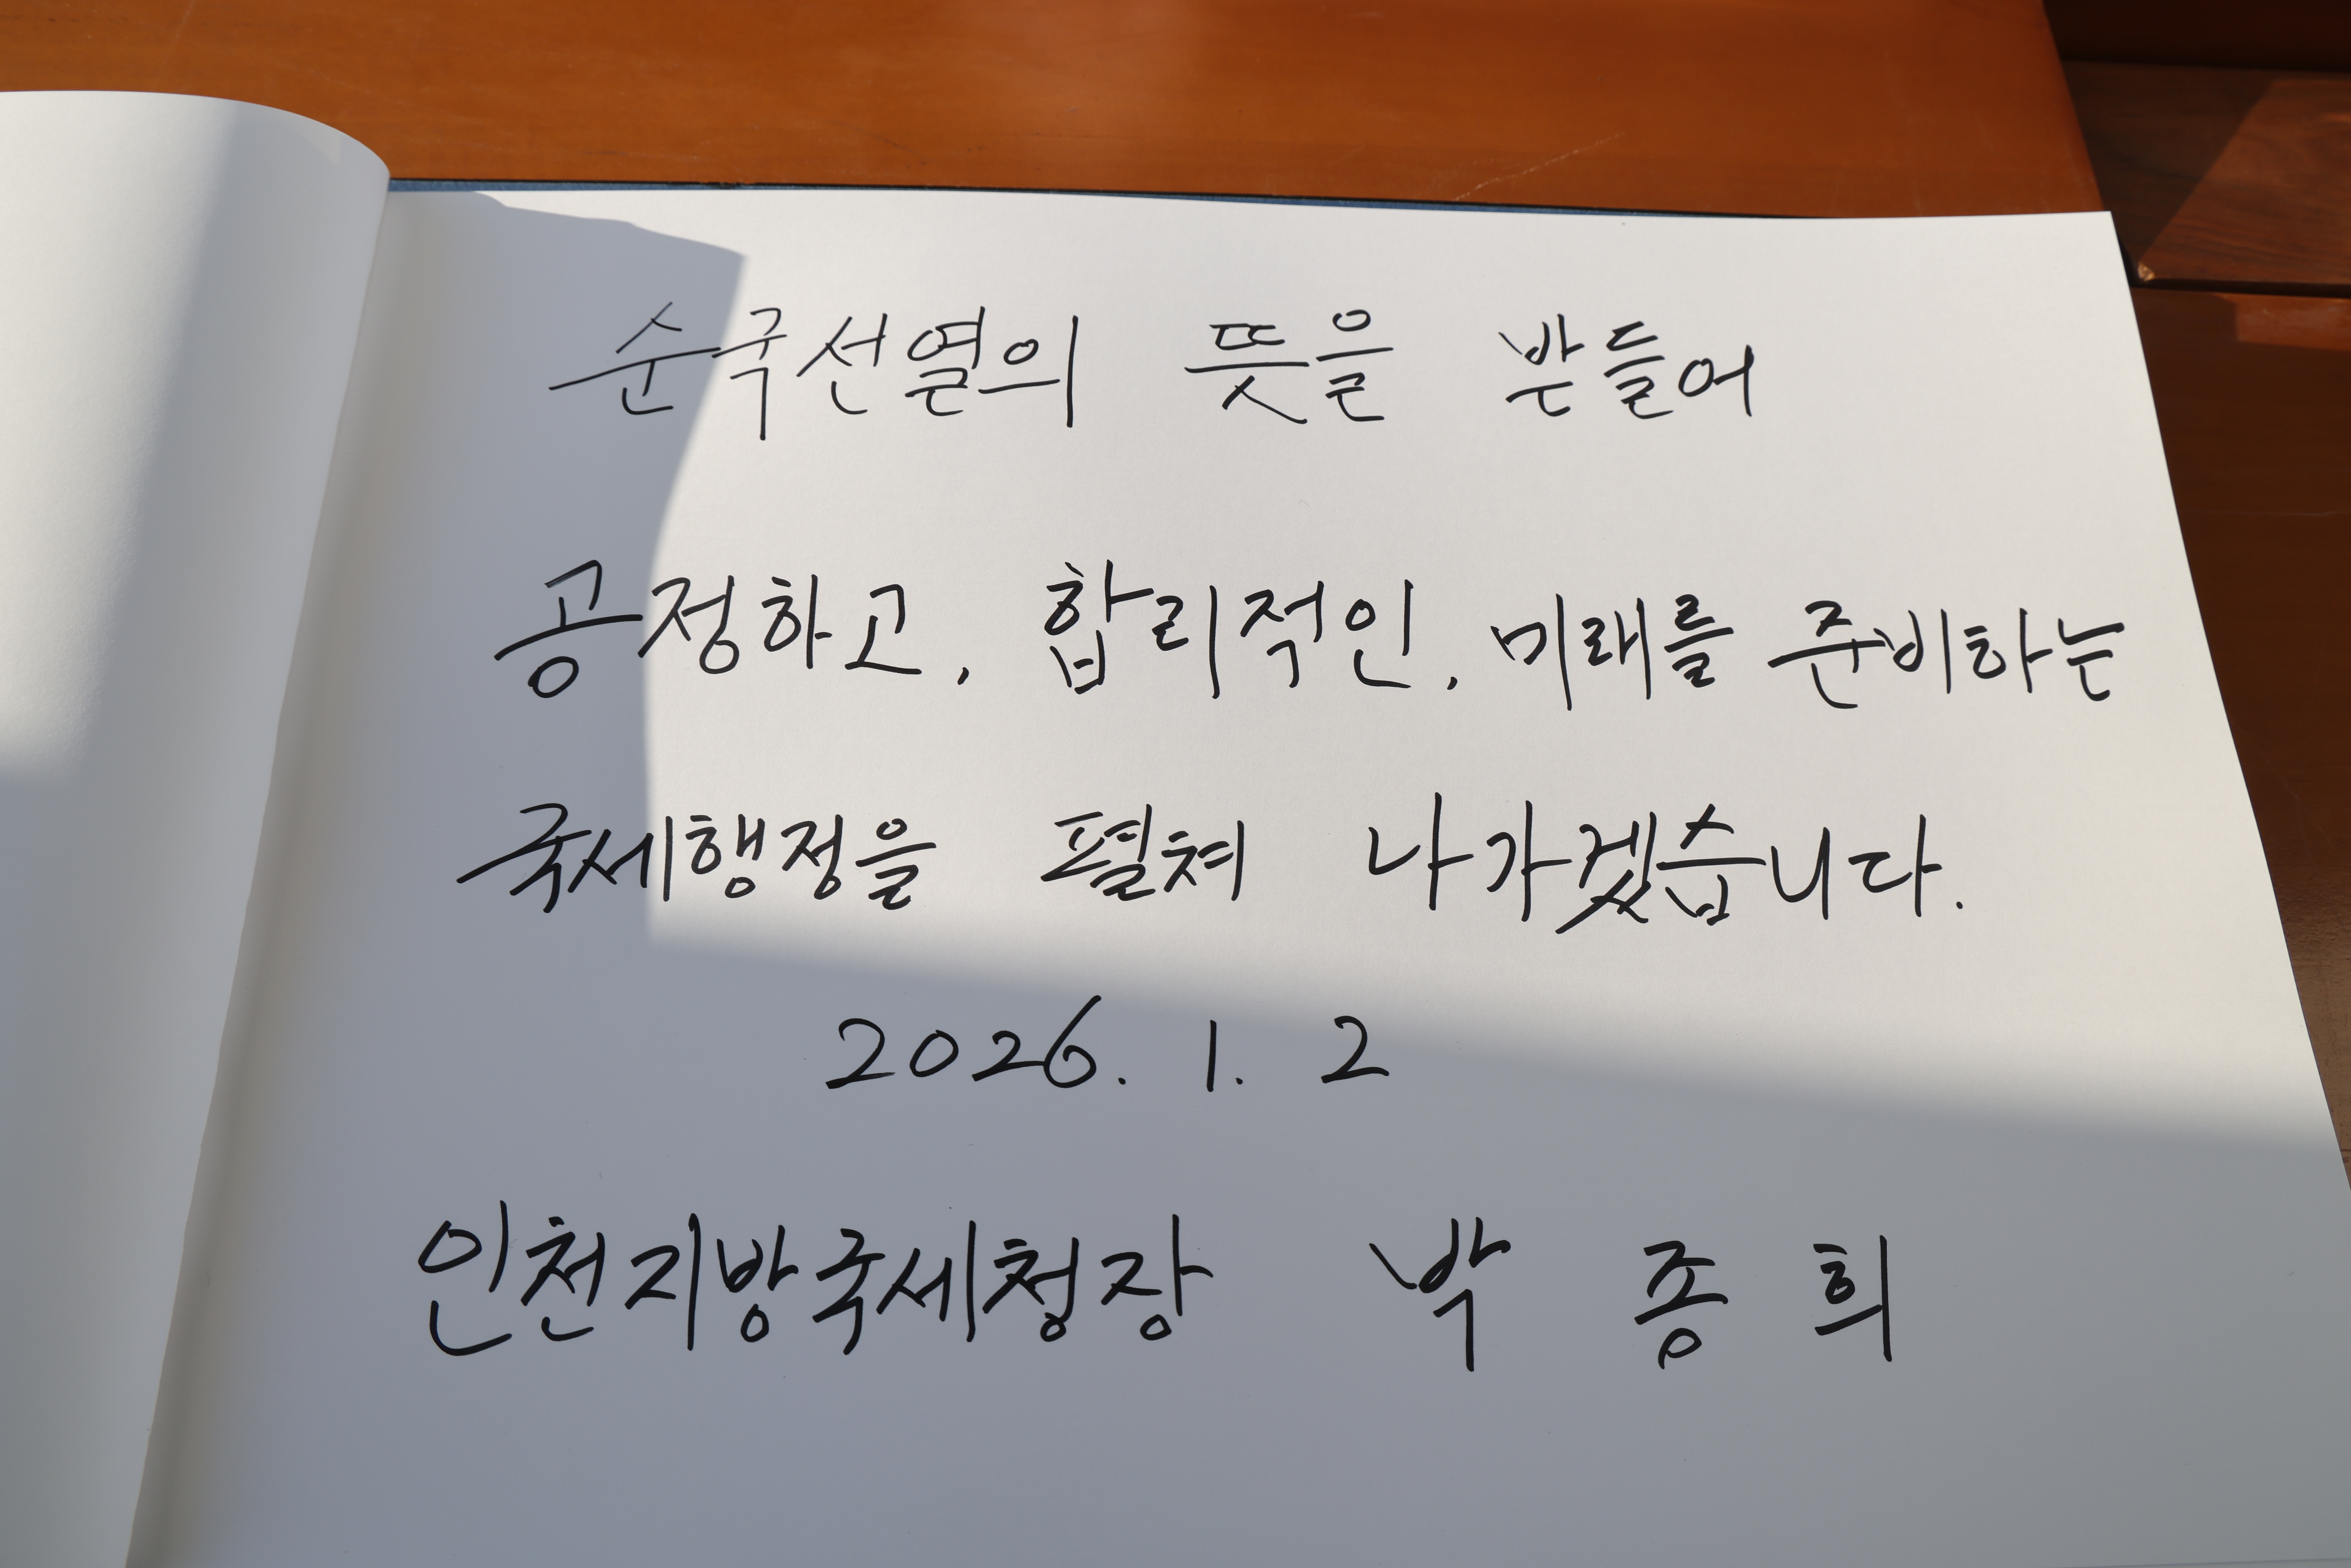 순국선열의 뜻을 받들어
공정하고, 합리적인, 미래를 준비하는
국세행정을 펼쳐 나가겠습니다.
2026. 1. 2
인천지방국세청장 박 종 희